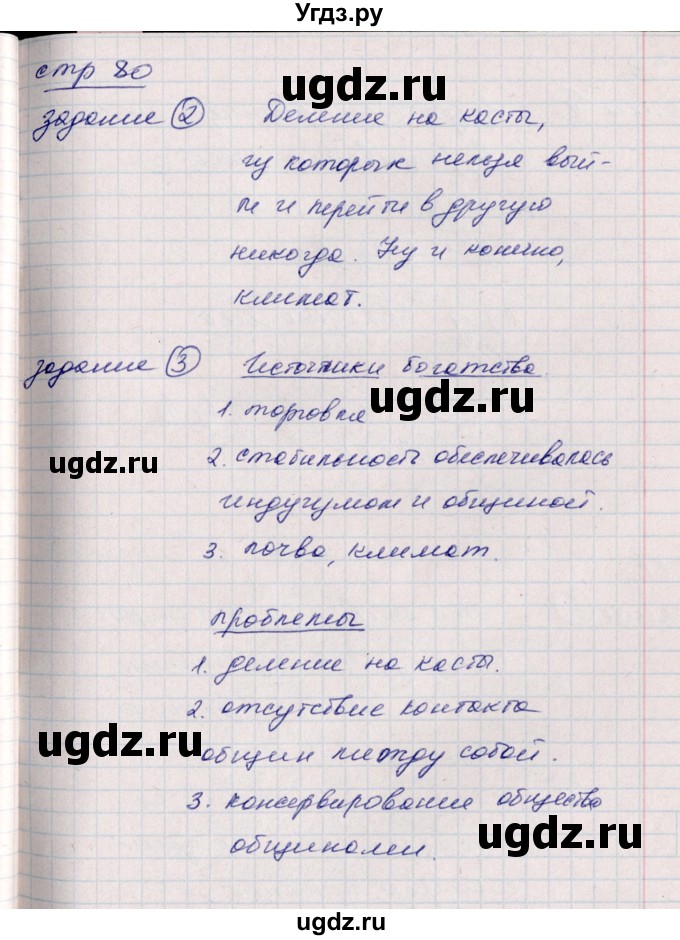 Угдз.ру
стр 80
ugdz.ru
задание 2 Деление на касты,
из которых нельзя вый-
ти и перейти в другую
никогда. Ну и конечно,
климат.
задание 3 Источники богатства.
ugdz.ru
1. торговля
2. стабильность обеспечивалась
ugdz.ru
индуизмом и общиной.
3. почва, климат.
проблемы
1. деление на касты.
2. отсутствие контакта
ugdz.ru
общин между собой.
3. консервирование общества
ugdz.ru
общинами.
ugdz.ru